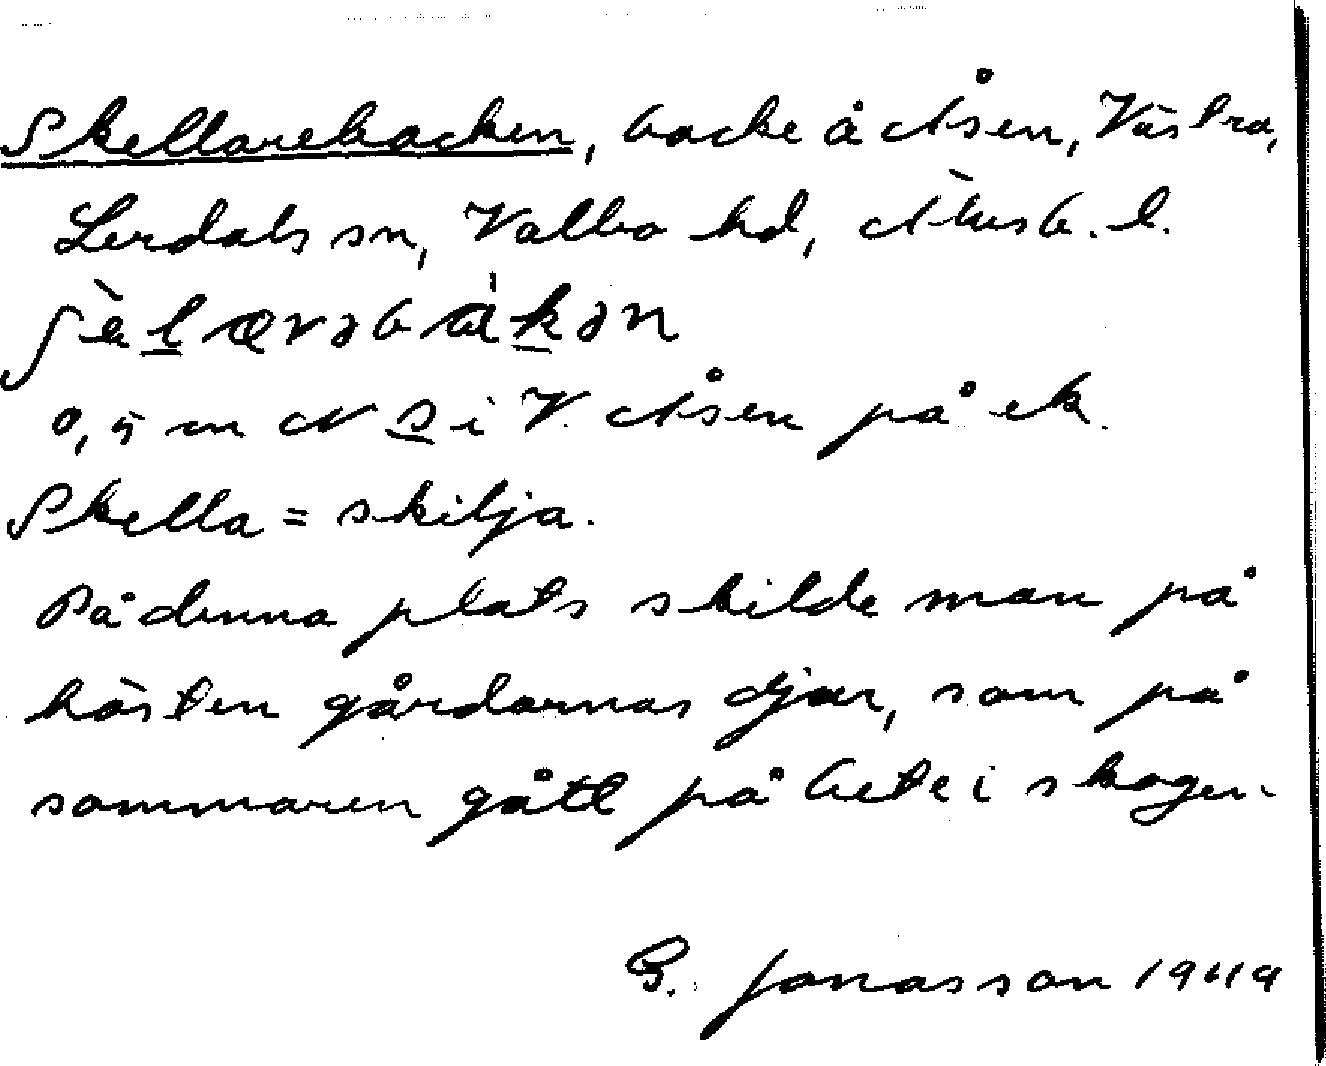 Skellarebacken, backe å Åsen, Västra,
Lerdals sn, Valbo hd, Älvsb. l.
ʃèlærəbákən
0,5 cm N S i V. Åsen på ek.
Skella = skilja.
På denna plats skilde man på
hösten gårdarnas djur, som på
sommaren gått på bete i skogen.
G. Jonasson 1949